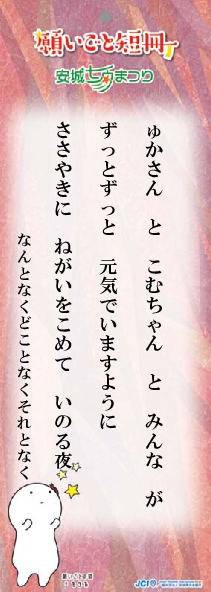 願いごと短冊
安城七夕まつり
ゅかさん と こむちゃん と みんな が
ずっとずっと 元気でいますように
ささやきに ねがいをこめて いのる夜
なんとなくどことなくそれとなく
願いごと短冊
JCI